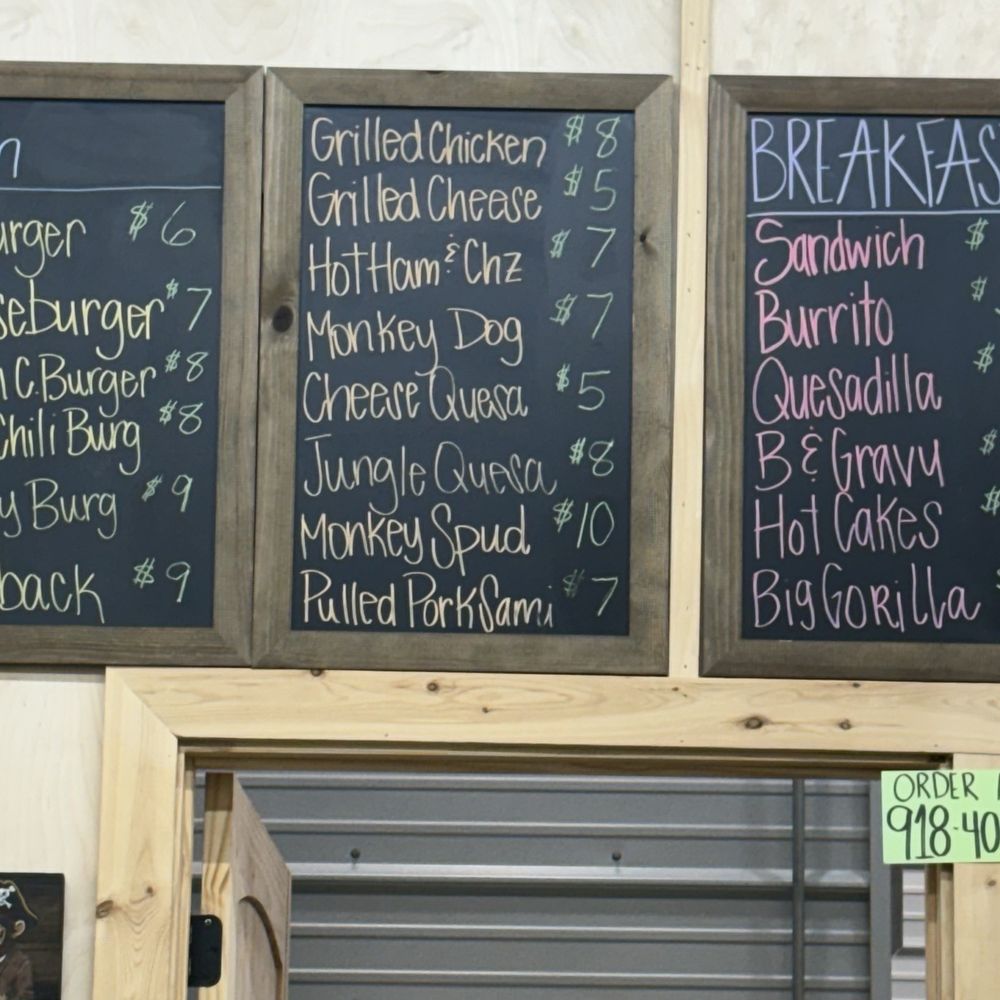 n
urger $6
seburger $7
C.Burger $8
Chili Burg $8
y Burg $9
back $9
Grilled Chicken $8
Grilled Cheese $5
Hot Ham & Chz $7
Monkey Dog $7
Cheese Quesa $5
Jungle Quesa $8
Monkey Spud $10
Pulled Pork Sami $7
BREAKFAS
Sandwich $
Burrito $
Quesadilla $
B & Gravy $
Hot Cakes $
Big Gorilla
ORDER
918-40